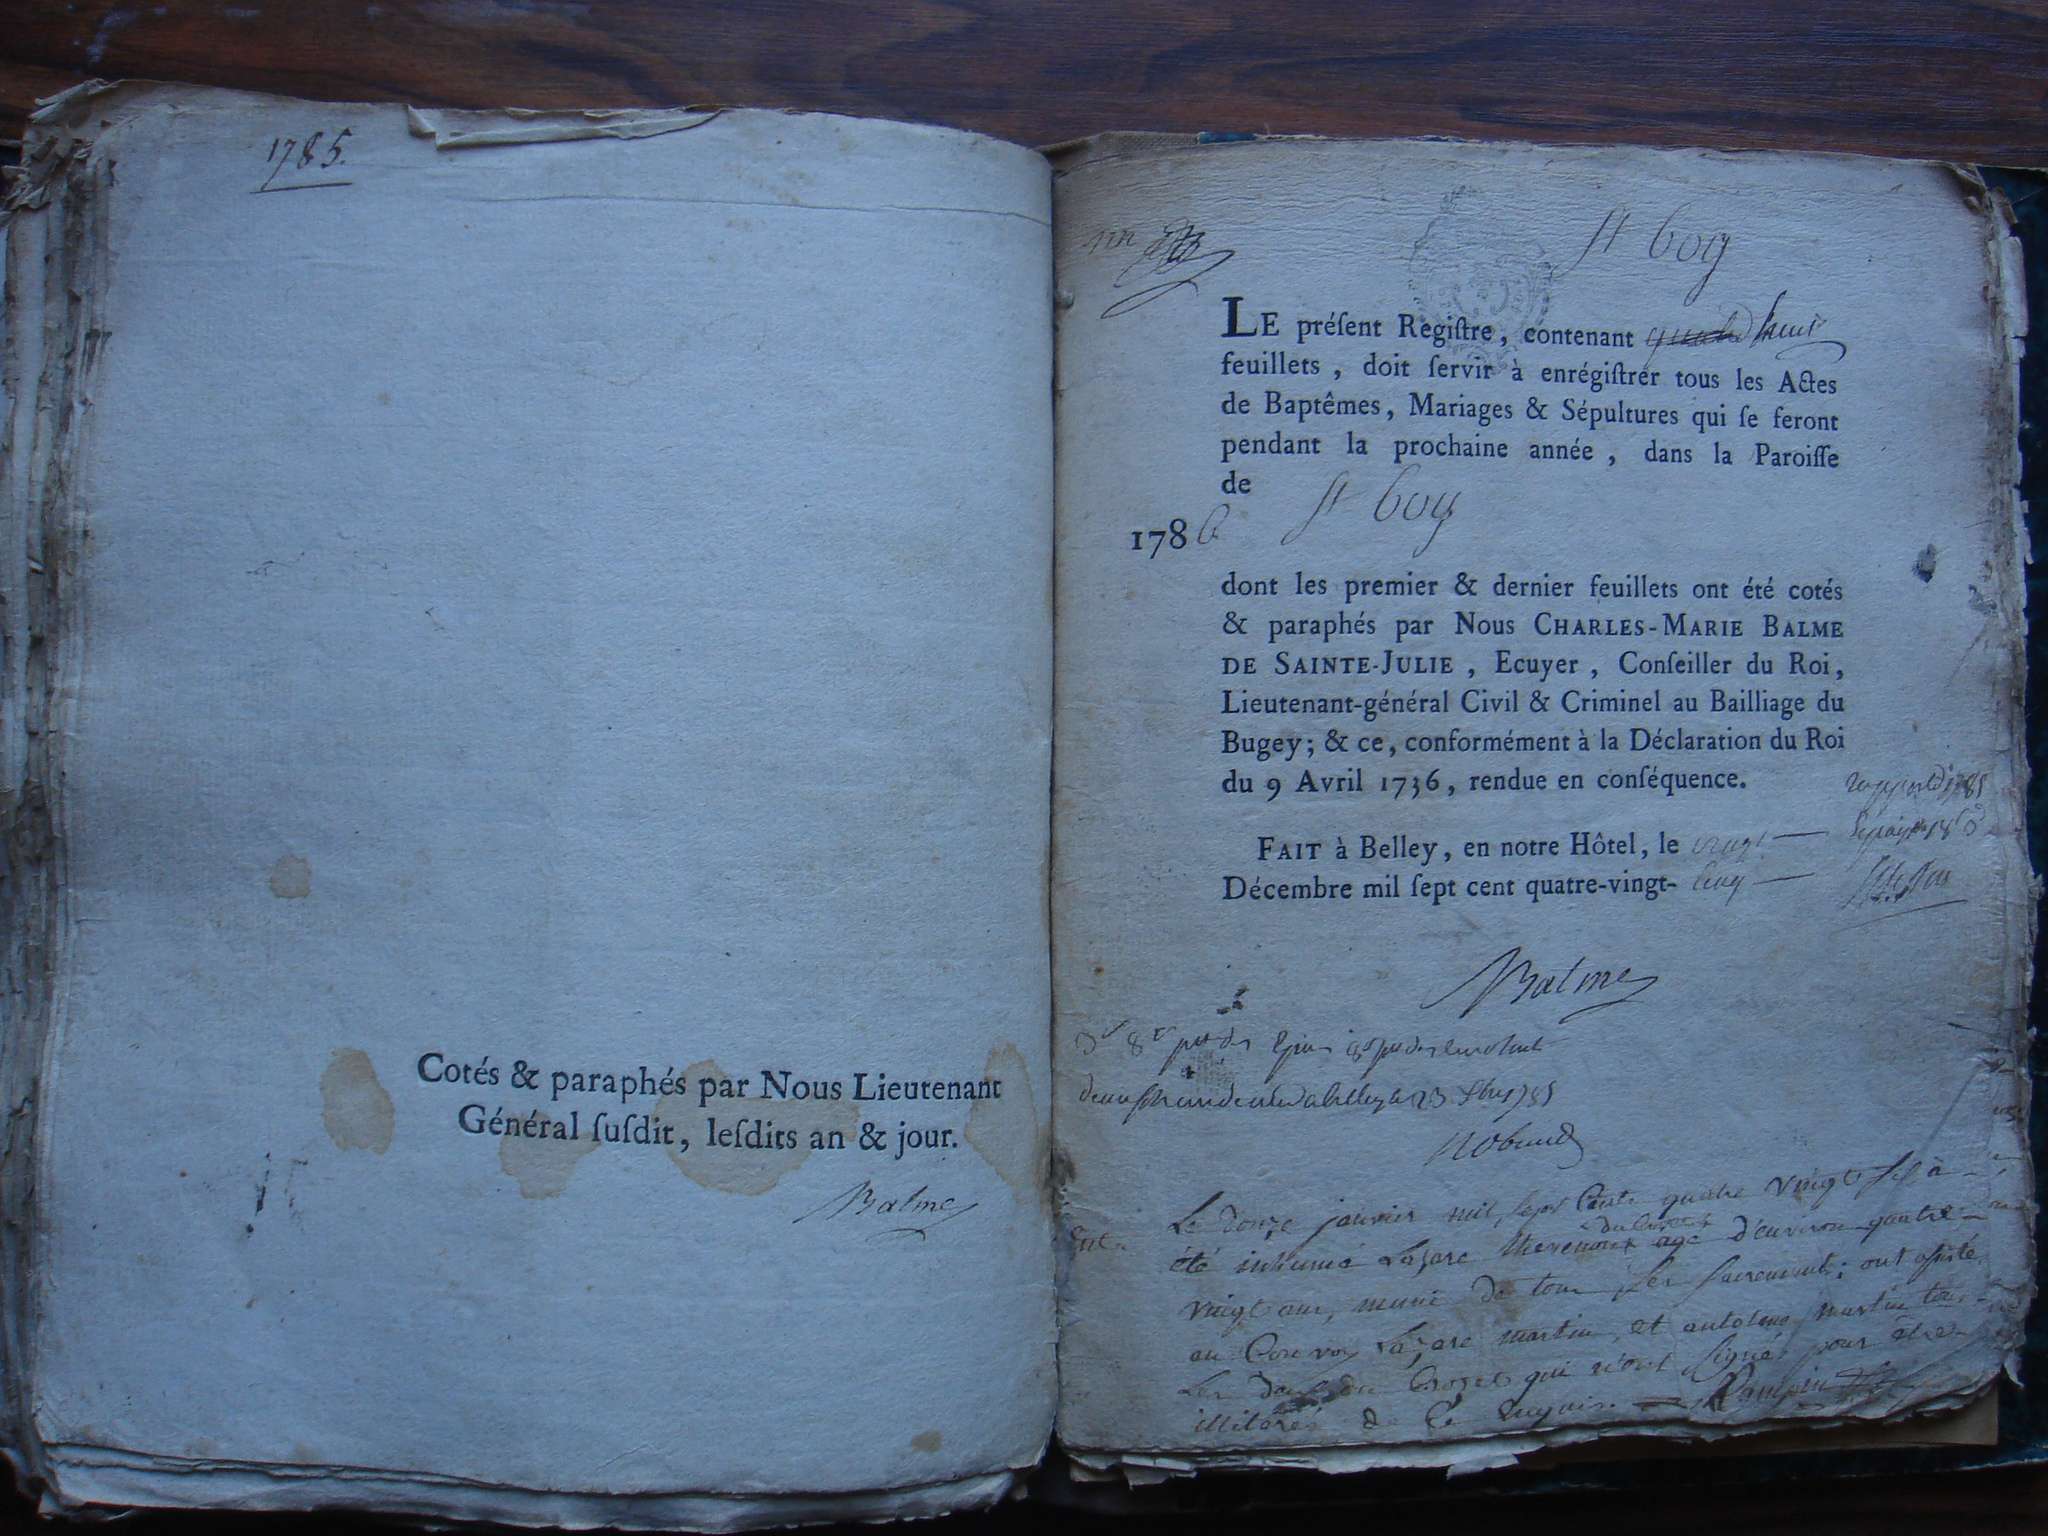 1785.
Cotés & paraphés par Nous Lieutenant
Général ſuſdit, leſdits an & jour.
Balme
St boy
LE préſent Regiſtre, contenant huit
feuillets, doit ſervir à enrégiſtrer tous les Actes
de Baptêmes, Mariages & Sépultures qui ſe feront
pendant la prochaine année, dans la Paroiſſe
de St boy
1786
dont les premier & dernier feuillets ont été cotés
& paraphés par Nous CHARLES-MARIE BALME
DE SAINTE-JULIE, Ecuyer, Conſeiller du Roi,
Lieutenant-général Civil & Criminel au Bailliage du
Bugey; & ce, conformément à la Déclaration du Roi
du 9 Avril 1736, rendue en conſéquence.
FAIT à Belley, en notre Hôtel, le vingt
Décembre mil ſept cent quatre-vingt-cinq
Balme
Le douze janvier mil sept cents quatre vingt six à
été inhumé Lazare thevenoux agé d'environ quatre
vingt ans, muni de tous ses sacrements; ont assisté
au Convoy Lazare martin, et antoine martin tous
Les deux du Crozet qui n'ont signés pour être
illiterés de Ce enquis.